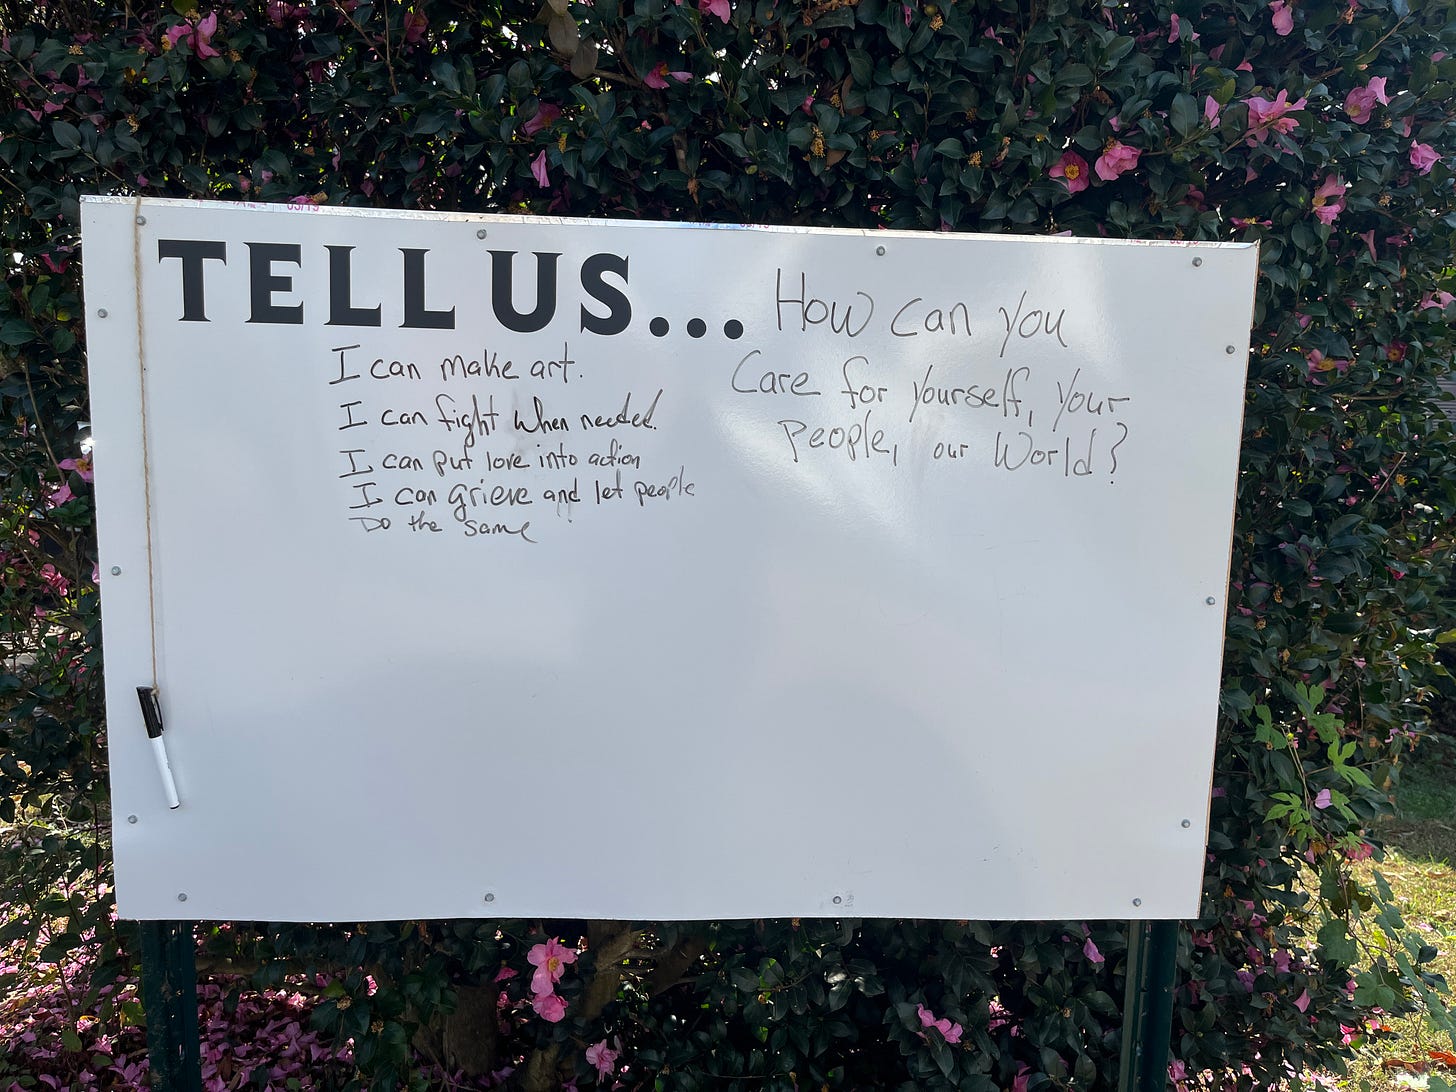 TELL US... How can you
Care for yourself, your
people, our World?
I can make art.
I can fight when needed.
I can put love into action
I can grieve and let people
Do the same